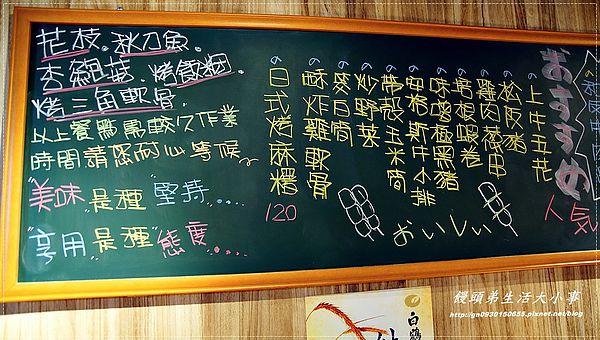 花枝.秋刀魚.
杏鮑菇.烤飯糰.
烤三角軟骨.
以上餐點需較久作業
時間請您耐心等候~
"美味"是種"堅持....
"享用"是種"態度"....
おすすめ
人気
上牛五花
松阪豬
雞肉蔥串
味噌極黑豬
安格斯牛小排
帶殼玉米筒
炒野菜
酥炸雞軟骨
日式烤麻糬
120
おいしい
白鶴
饅頭弟生活大小事
http://gn0930150655.pixnet.net/blog